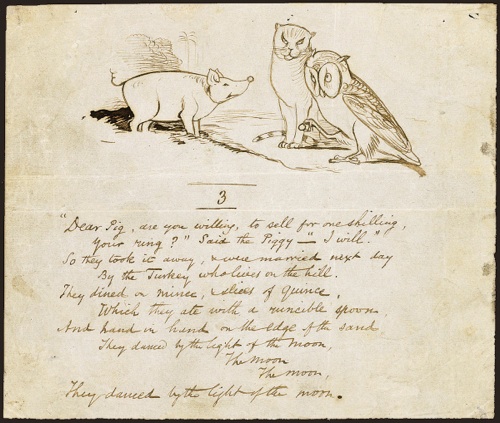 3
"Dear Pig, are you willing, to sell for one shilling,
Your ring?" Said the Piggy — "I will."
So they took it away, & were married next day
By the Turkey who lives on the hill.
They dined on mince, & slices of Quince,
Which they ate with a runcible spoon,
And hand in hand on the edge of the sand
They danced by the light of the moon,
The moon
The moon,
They danced by the light of the moon.